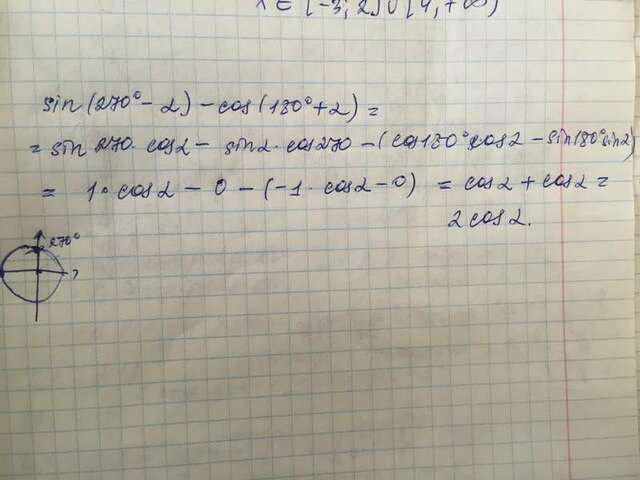 x ∈ [-3, 2] ∪ [4, +∞)
sin(270° - α) - cos(180° + α) =
= sin 270 · cos α - sin α · cos 270 - (cos 180° · cos α - sin 180° sin α)
= 1 · cos α - 0 - (-1 · cos α - 0) = cos α + cos α =
2 cos α.
270°